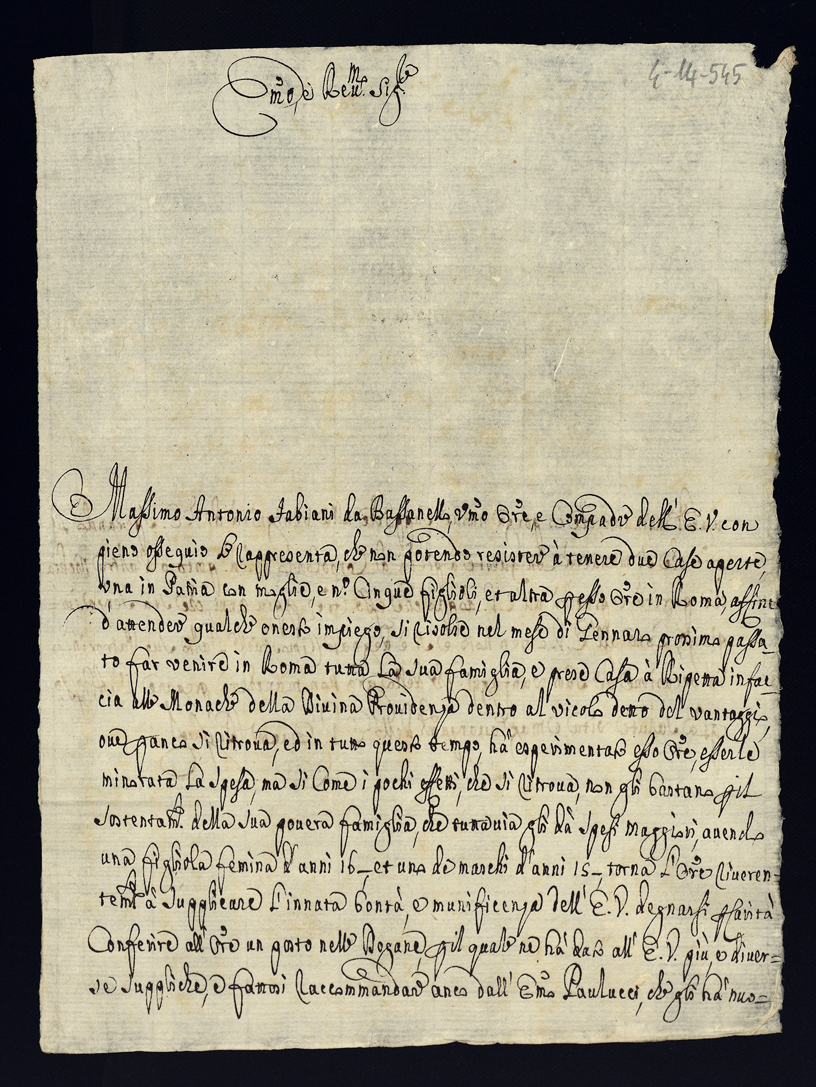 4-14-545
Em̃o, e Reu.mo Sig.re
Massimo Antonio Fabiani da Bassanello, vm̃o Ore, e Compadre dell' E. V. con
pieno ossequio Le rappresenta, che non potendo resistere à tenere due Case aperte,
vna in Patria con moglie, e n.o Cinque figlioli, et altra p esso Ore in Roma, affine
d'attendere qualche onesto impiego, si risolse nel mese di Gennaro prossimo passa-
to far venire in Roma tutta la sua famiglia, e prese Casa à Ripetta in fac-
cia alle Monache della Diuina Prouidenza dentro al vicolo detto del vantaggio,
oue p anco si ritroua, ed in tutto questo tempo hà esperimentato esso Ore, esserle
minorata la spesa, ma si Come i pochi effetti, che si ritroua, non gli bastano p il
sostentam.to della sua pouera famiglia, che tuttauia gli dà spesi maggiori, auendo
una figliola femina d'anni 16_, et uno de maschi d'anni 15_ torna l'Ore riueren-
tem.te à supplicare l'innata bontà, e munificenza dell' E. V. degnarsi p carità
Conferire all' Ore un posto nelle Dogane, p il quale ne hà dato all' E. V. più, e diuer-
se suppliche, e fattosi raccommandare anco dall' Em̃o Paulucci, che gli hà nuo-